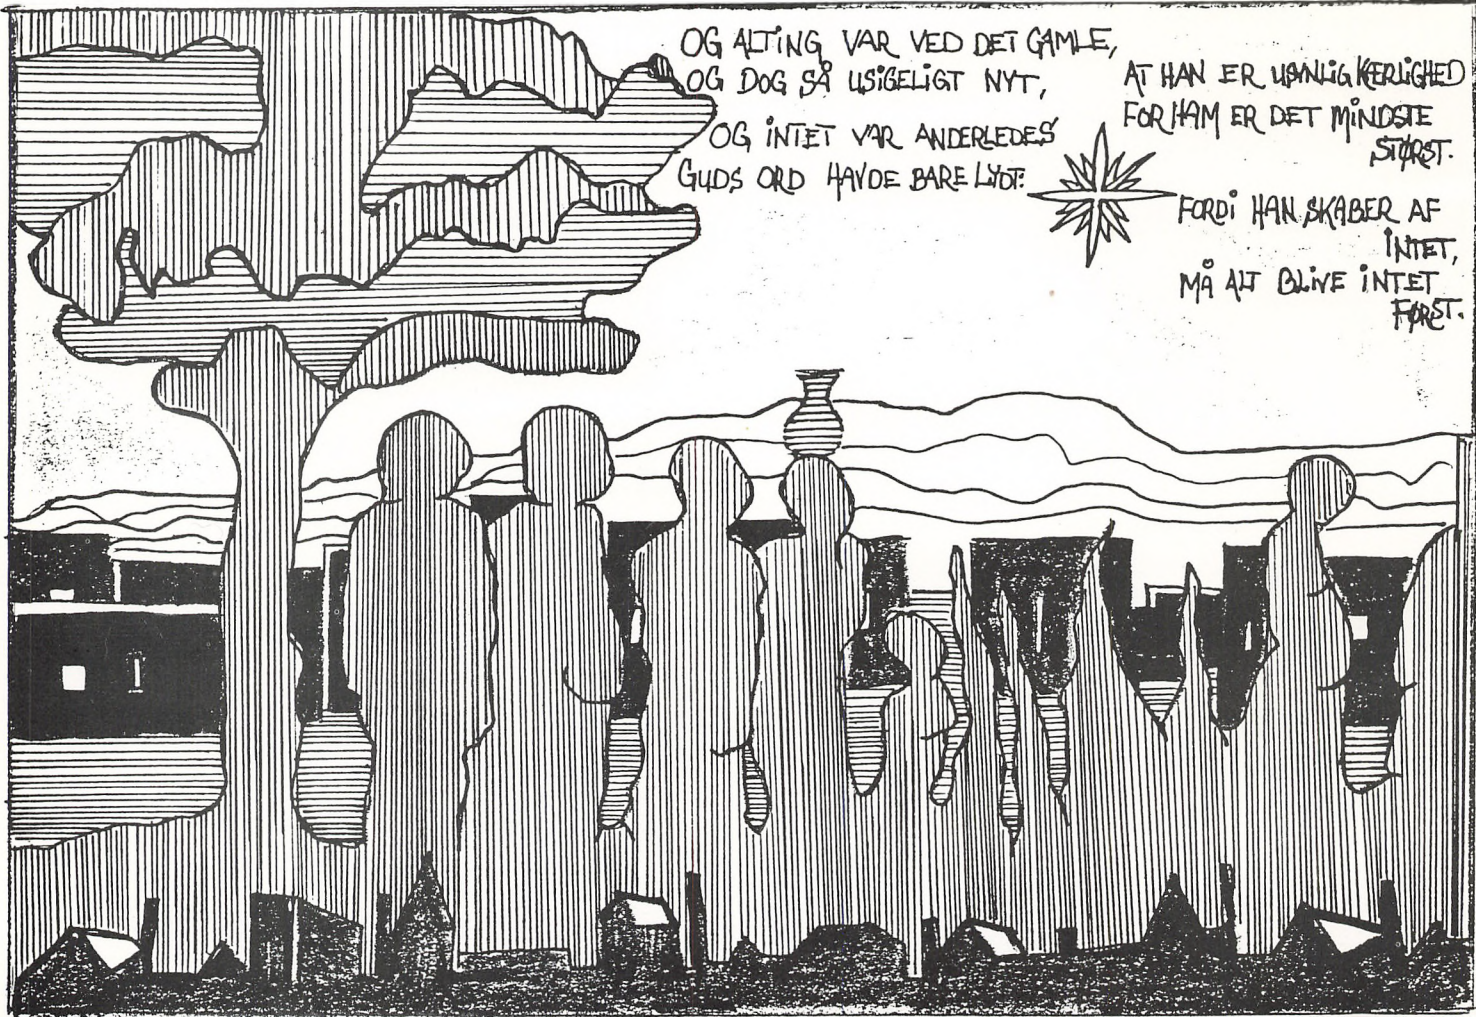 OG ALTING VAR VED DET GAMLE,
OG DOG SÅ USIGELIGT NYT,
OG INTET VAR ANDERLEDES
GUDS ORD HAVDE BARE LYDT:
AT HAN ER USYNLIG KÆRLIGHED
FOR HAM ER DET MINDSTE
STØRST.
FORDI HAN SKABER AF
INTET,
MÅ ALT BLIVE INTET
FØRST.